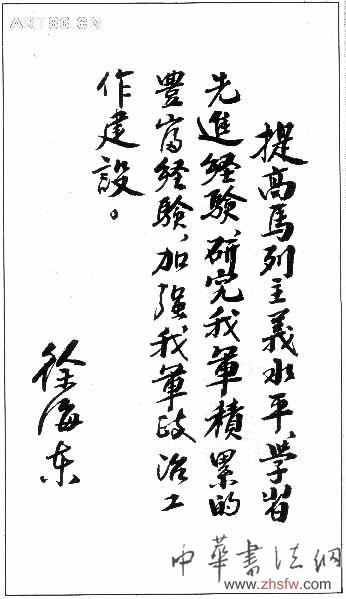 ART86.CN
提高馬列主義水平、學習
先進经驗、研究我軍積累的
豐富经驗，加强我軍政治工
作建設。
徐海东
中華書法網
www.zhsfw.com